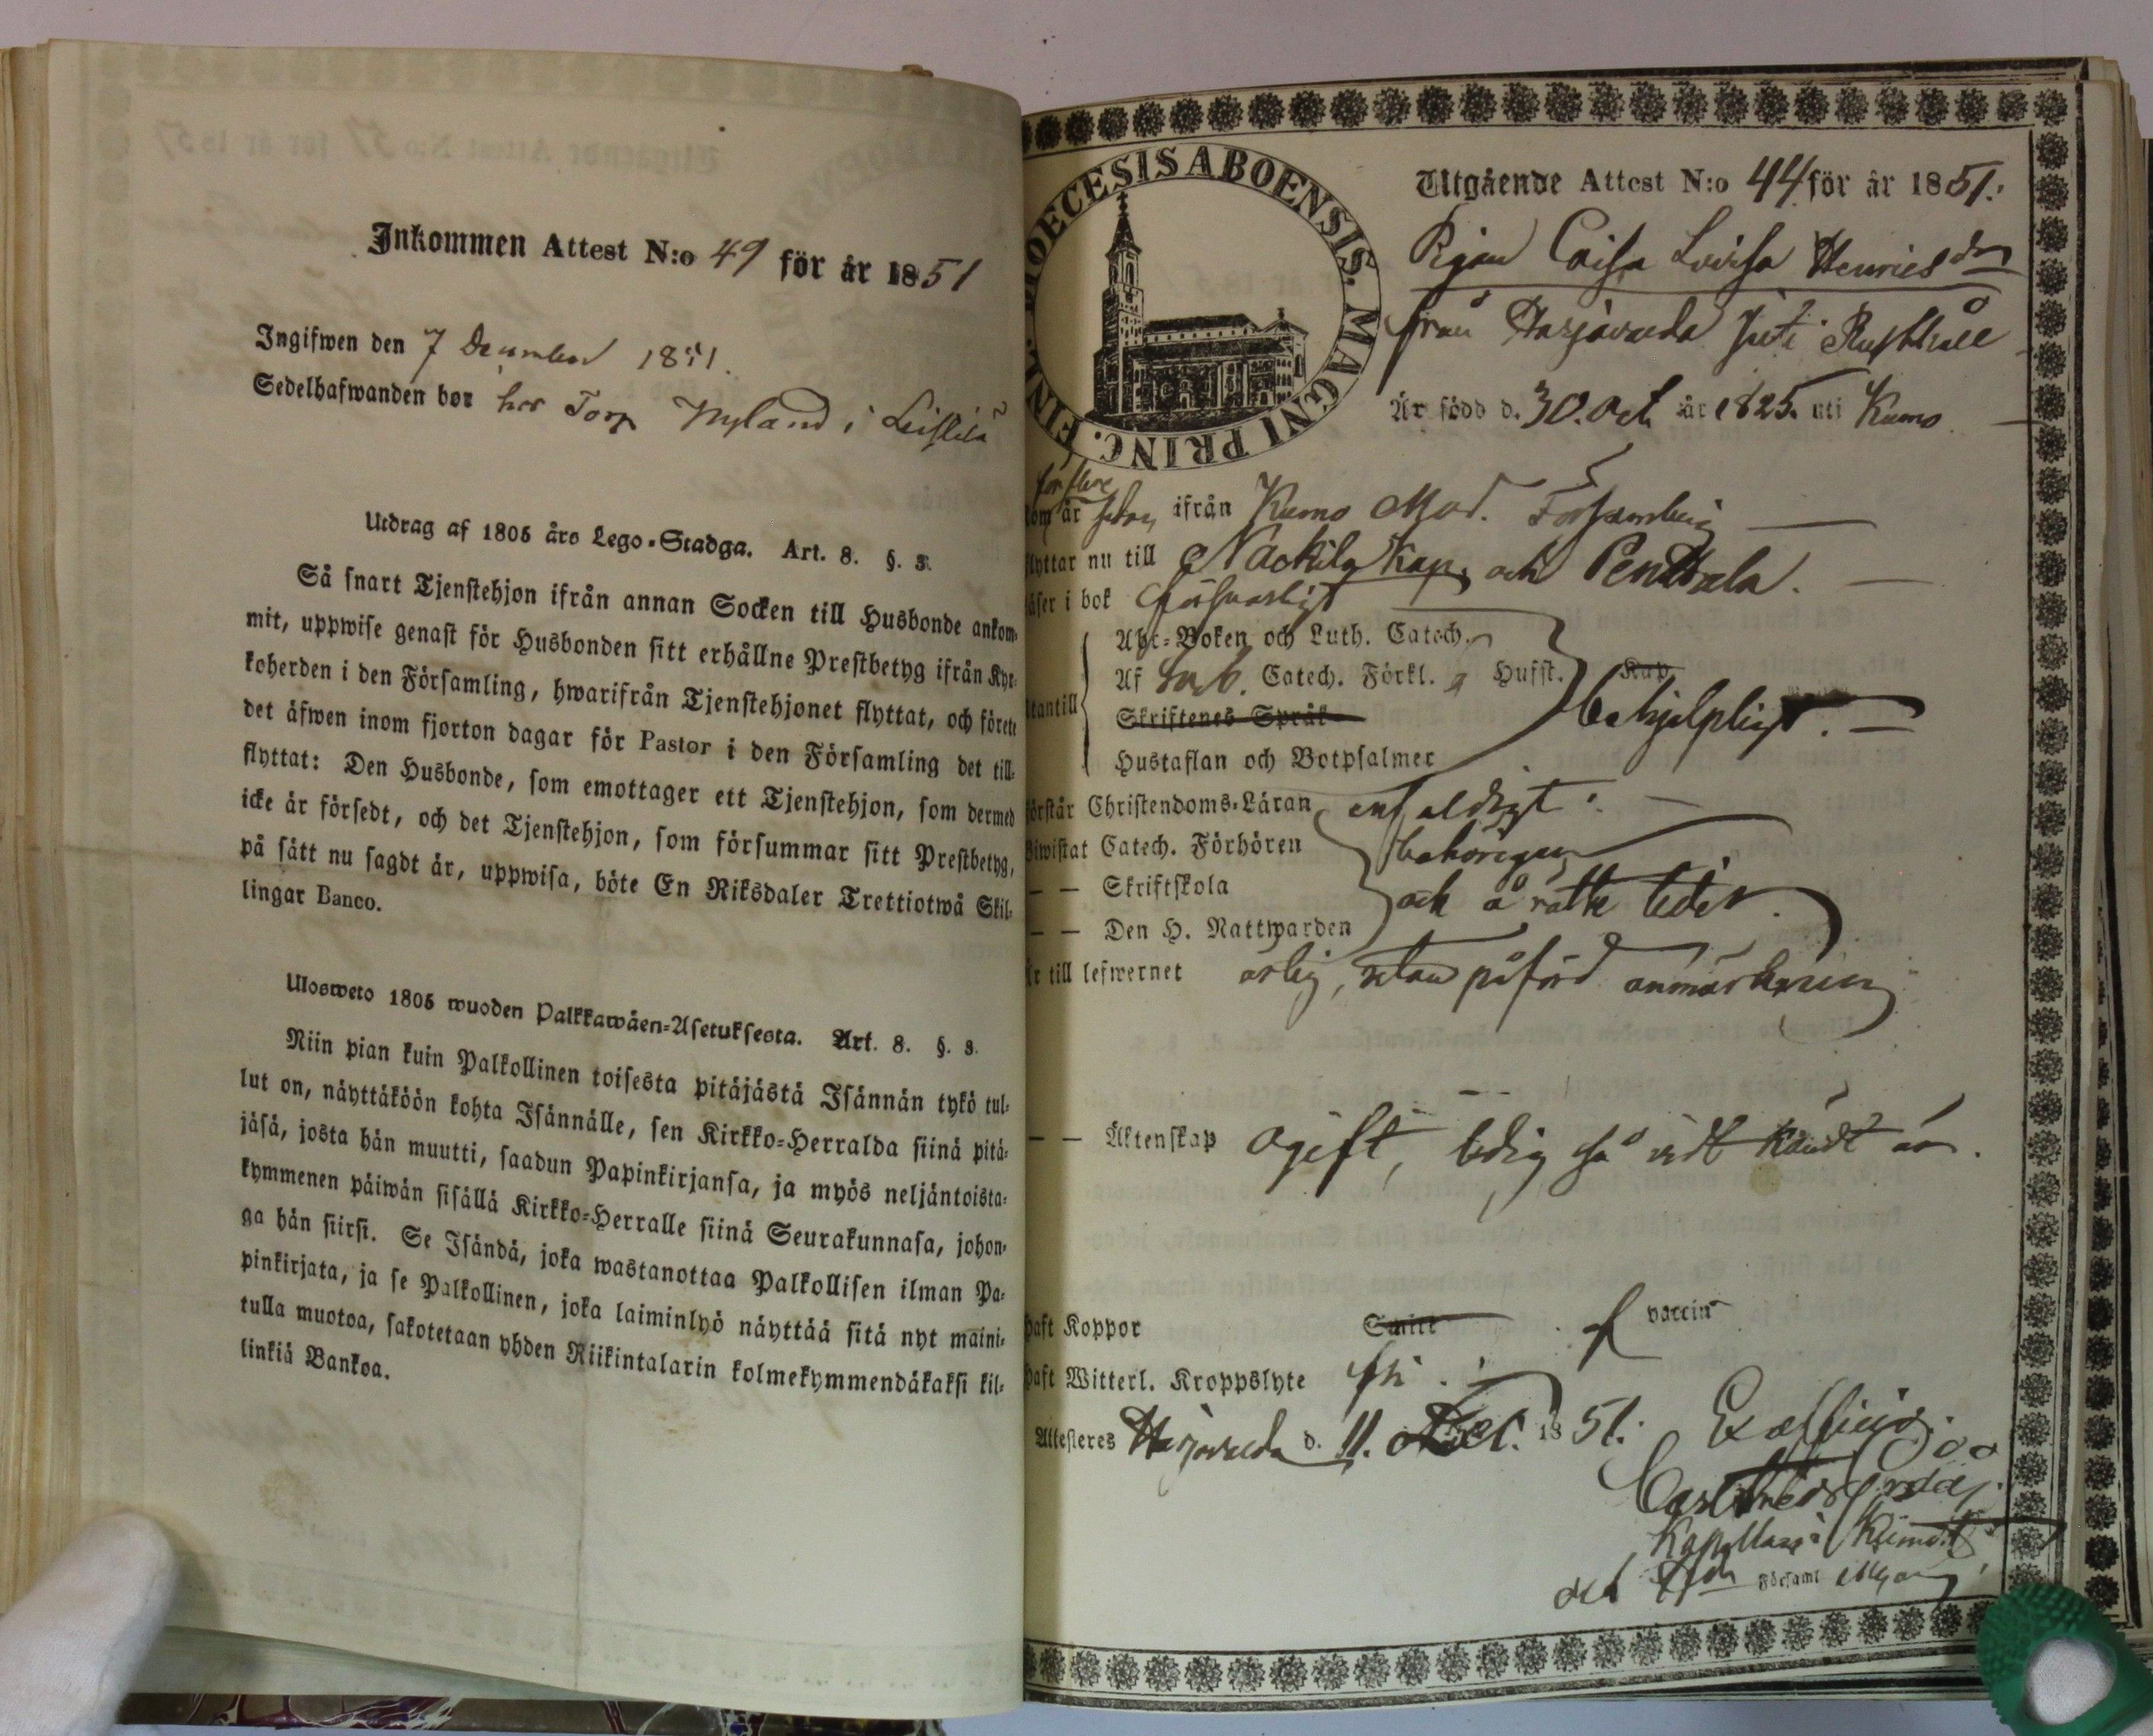 Inkommen Attest N:o 49 för år 1851
Ingifwen den 7 December 1851.
Sedelhafwanden bor hos Torp Nyland i Leistilä
Utdrag af 1805 års Lego-Stadga. Art. 8. §. 3.
Så snart Tjenstehjon ifrån annan Socken till Husbonde ankom-
mit, uppwise genast för Husbonden sitt erhållne Prestbetyg ifrån Kyr-
koherden i den Församling, hwarifrån Tjenstehjonet flyttat, och förete
det äfwen inom fjorton dagar för Pastor i den Församling det till-
flyttat: Den Husbonde, som emottager ett Tjenstehjon, som dermed
icke är försedt, och det Tjenstehjon, som försummar sitt Prestbetyg,
på sätt nu sagdt är, uppwisa, böte En Riksdaler Trettiotwå Skil-
lingar Banco.
Ulosweto 1805 wuoden Palkkawäen-Asetuksesta. Art. 8. §. 3.
Niin pian kuin Palkollinen toisesta pitäjästä Isännän tykö tul-
lut on, näyttäköön kohta Isännälle, sen Kirkko-Herralda siinä pitä-
jäsä, josta hän muutti, saadun Papinkirjansa, ja myös neljäntoista-
kymmenen päiwän sisällä Kirkko-Herralle siinä Seurakunnasa, johon-
ga hän siirsi. Se Isändä, joka wastanottaa Palkollisen ilman Pa-
pinkirjata, ja se Palkollinen, joka laiminlyö näyttää sitä nyt maini-
tulla muotoa, sakotetaan yhden Riikintalarin kolmekymmendäkaksi kil-
linkiä Bankoa.
DIOECESIS ABOENSIS. MAGNI PRINC. FINL.
Utgående Attest N:o 44 för år 1851.
Pigan Caisa Lovisa Henricsdr
från Harjavalda Juti Rusthåll
Är född d. 30. Oct. år 1825. uti Kumo
för flere
som är sedan ifrån Kumo Mod. Församling
flyttar nu till Nackila Kap. och Penttala.
läser i bok försvarligt
Abc-Boken och Luth. Catech.
Af Catech. Förkl. Husst. Kap
utantill behjelpligt.
Skriftenes Språk
Hustaflan och Botpsalmer
förstår Christendoms-Läran enfaldigt.
biwistat Catech. Förhören behörigen
— — Skriftskola och å rätta tider.
— — Den H. Nattwarden
är till lefwernet ärlig, utan påförd anmärkning
— — Äktenskap ogift, ledig så vidt kändt är.
haft Koppor Smitt vaccin
haft Witterl. Kroppslyte fri.
Attesteras Harjavalda d. 11. Oct. 1851. Ex officio.
Kapellan i Kumo
och Församl